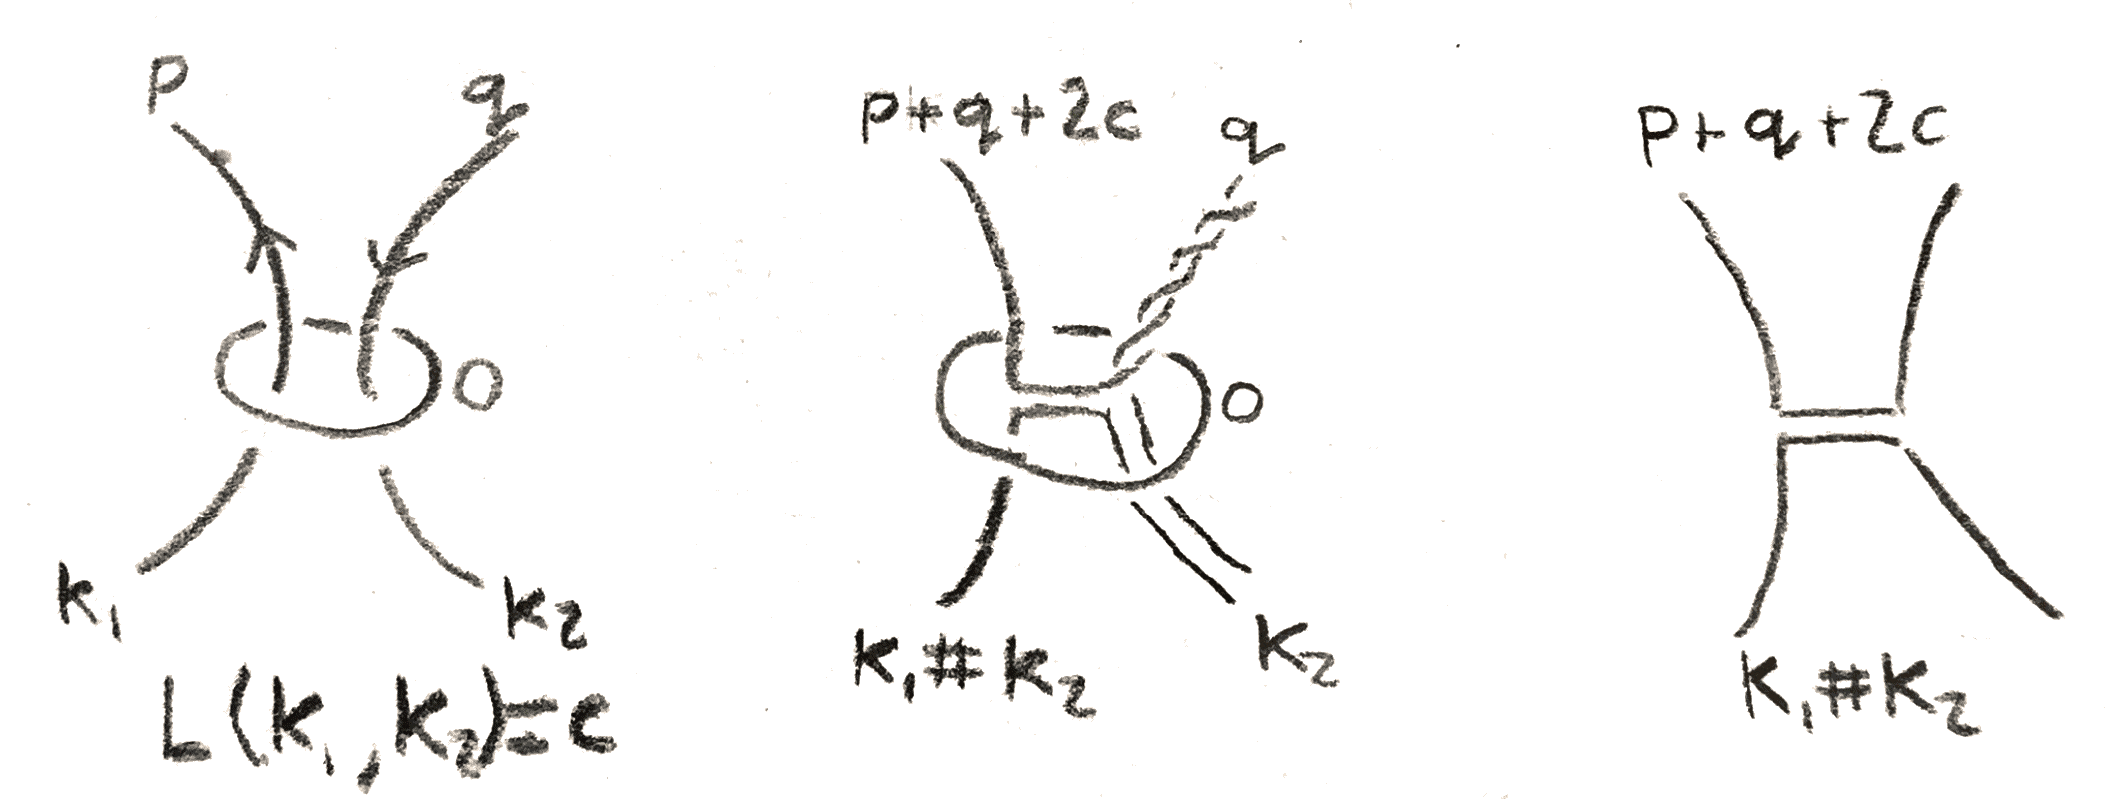 p q
O
K₁ K₂
L(K₁, K₂)=c
p+q+2c q
O
K₁#K₂ K₂
p+q+2c
K₁#K₂